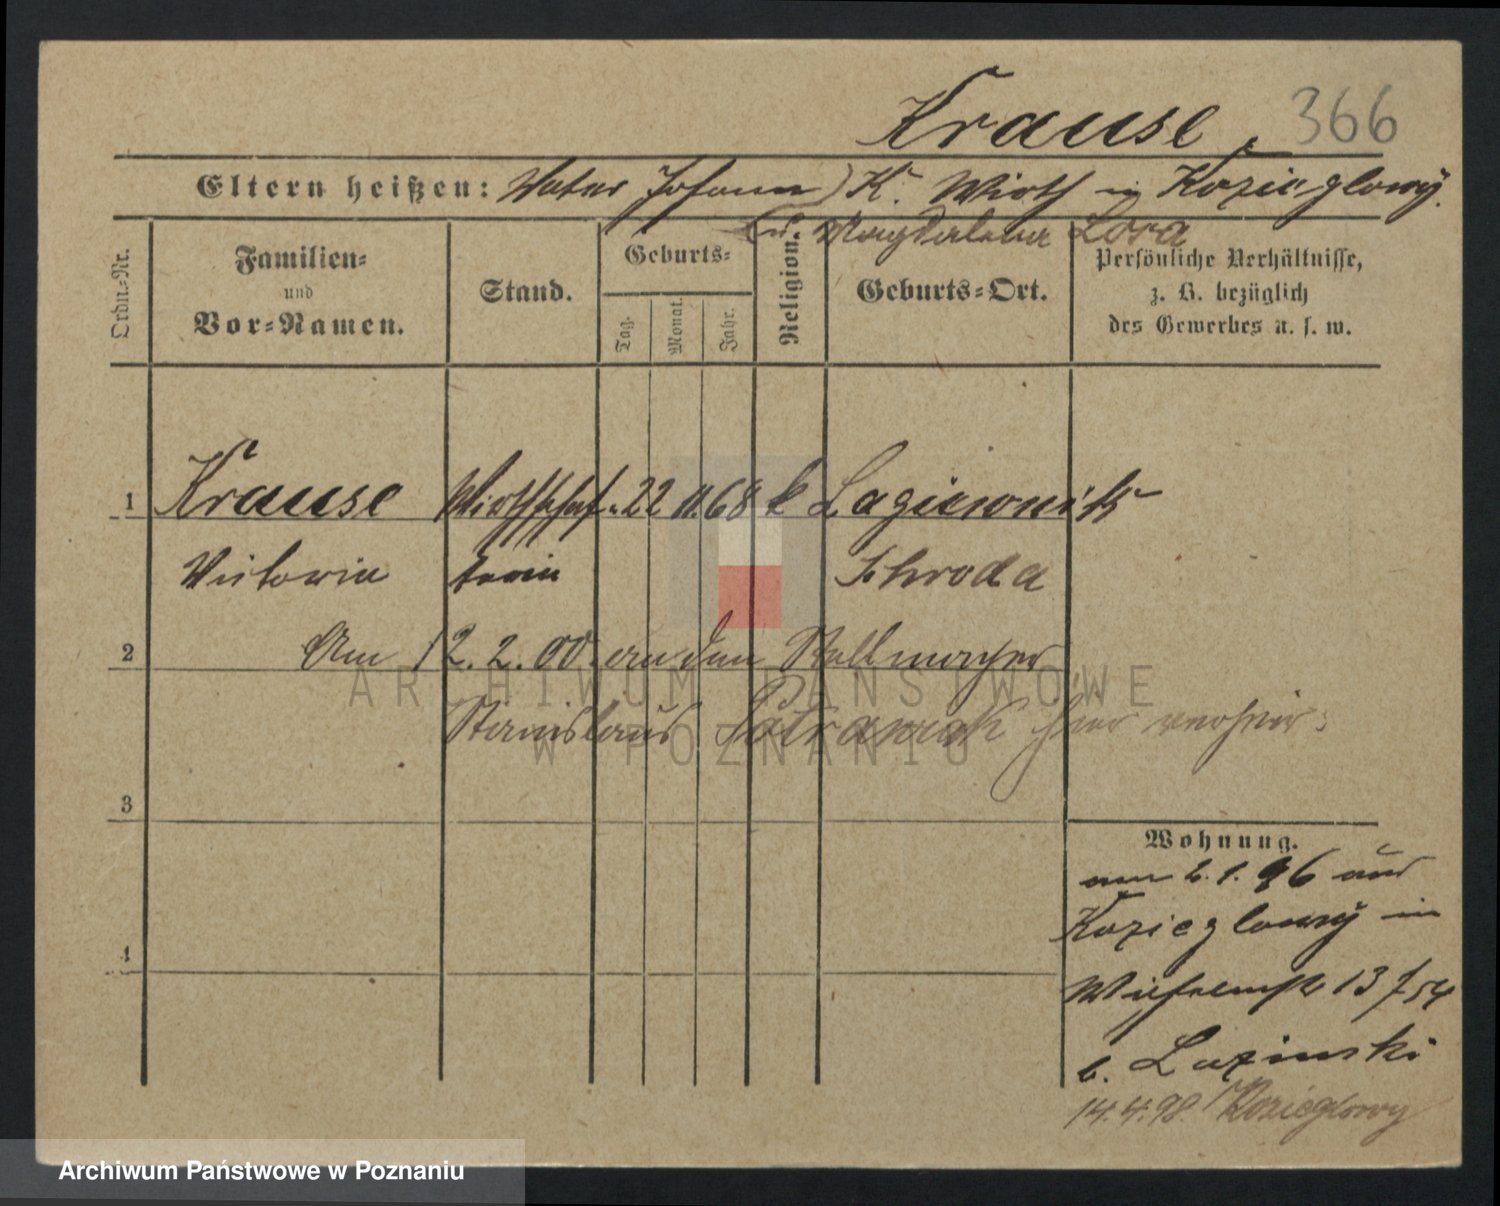 Krause, 366
Eltern heißen: Vater Johann K. Wirth in Kozieglowy.
u. Magdalena Lora
Ordn.-Nr.
Familien-
und
Vor-Namen.
Stand.
Geburts-
Tag.
Monat.
Jahr.
Religion.
Geburts-Ort.
Persönliche Verhältnisse,
z. B. bezüglich
des Gewerbes u. s. w.
1 Krause Wirthschaf- 22 11. 68 k
Victoria terin Schroda
2 Am 12.2.00. an den Stellmacher
Stanislaus hier verheir:
3
4
Wohnung.
am 2.1.96 aus
Kozieglowy in
Wilhelmstr 13
b. Lozinski
14.4.98. Kozieglowy
ARCHIWUM PAŃSTWOWE
W POZNANIU
Archiwum Państwowe w Poznaniu